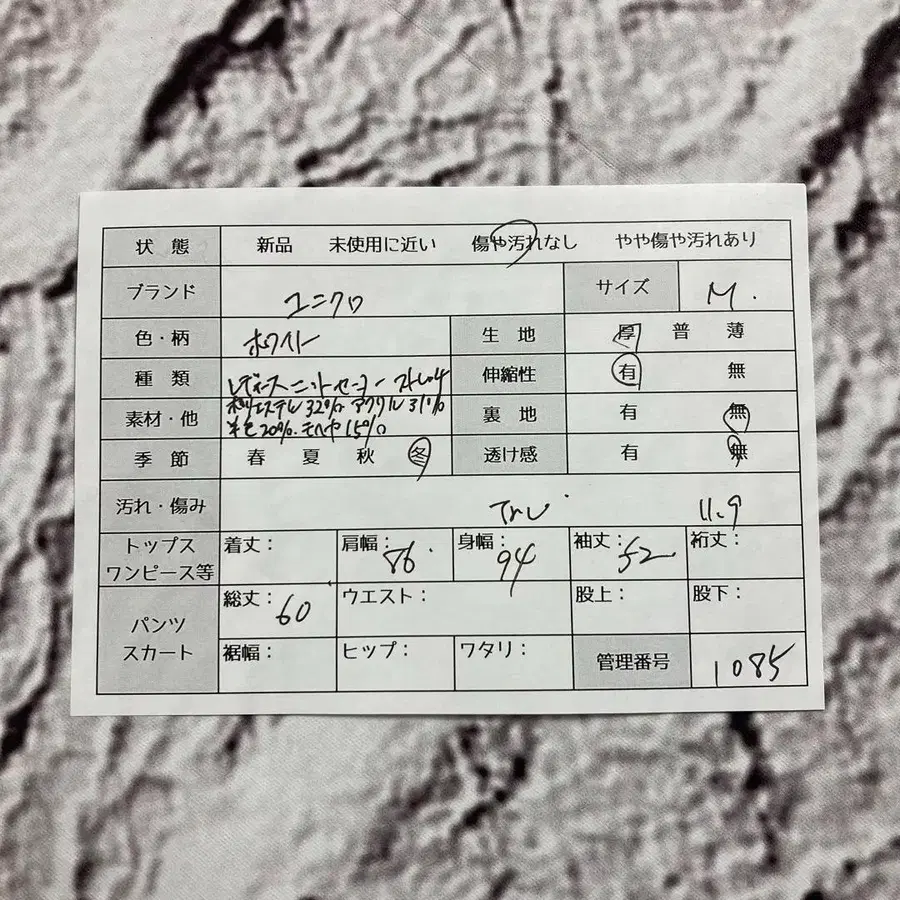 状態 新品 未使用に近い 傷や汚れなし やや傷や汚れあり
ブランド ユニクロ サイズ M.
色・柄 ホワイト 生地 厚 普 薄
種類 レディースニットセーター 伸縮性 有 無
素材・他 ポリエステル32% アクリル31%
羊毛20%. モヘヤ15%
裏地 有 無
季節 春 夏 秋 冬 透け感 有 無
汚れ・傷み なし 11.9
トップス
ワンピース等
着丈： 肩幅： 袖丈：52 身幅：94 裄丈：
パンツ
スカート
総丈：60 ウエスト： 股上： 股下：
裾幅： ヒップ： ワタリ： 管理番号 1085